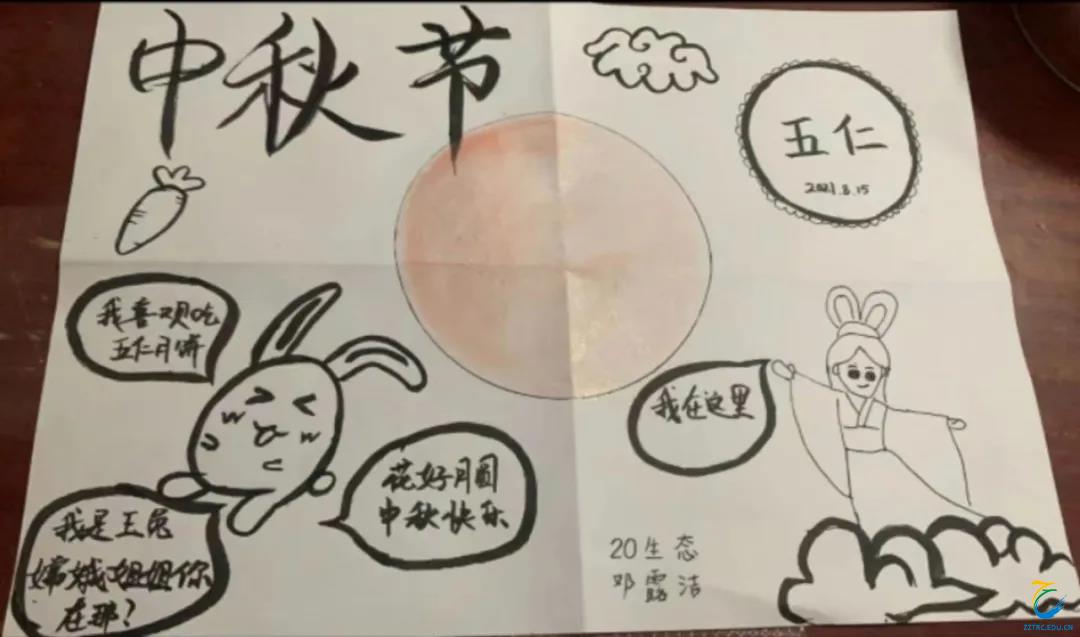 中秋节
五仁
2021.8.15
我喜欢吃
五仁月饼
我在这里
花好月圆
中秋快乐
我是玉兔
嫦娥姐姐你
在那？
20生态
邓露洁
ZZTRC.EDU.CN